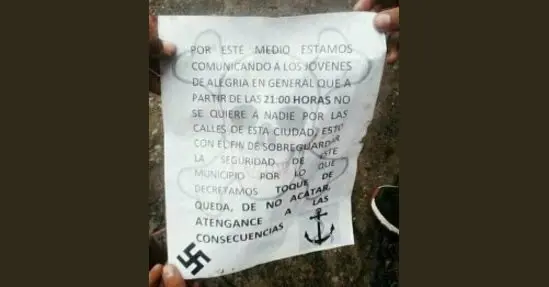 POR ESTE MEDIO ESTAMOS
COMUNICANDO A LOS JOVENES
DE ALEGRIA EN GENERAL QUE A
PARTIR DE LAS 21:00 HORAS NO
SE QUIERE A NADIE POR LAS
CALLES DE ESTA CIUDAD, ESTO
CON EL FIN DE SOBREGUARDAR
LA SEGURIDAD DE ESTE
MUNICIPIO POR LO QUE
DECRETAMOS TOQUE DE
QUEDA, DE NO ACATAR,
ATENGANCE A LAS
CONSECUENCIAS